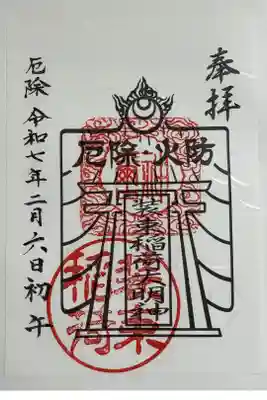 奉拝
厄除 火防
装束稲荷大明神
装束
稲荷
厄除 令和七年二月六日 初午